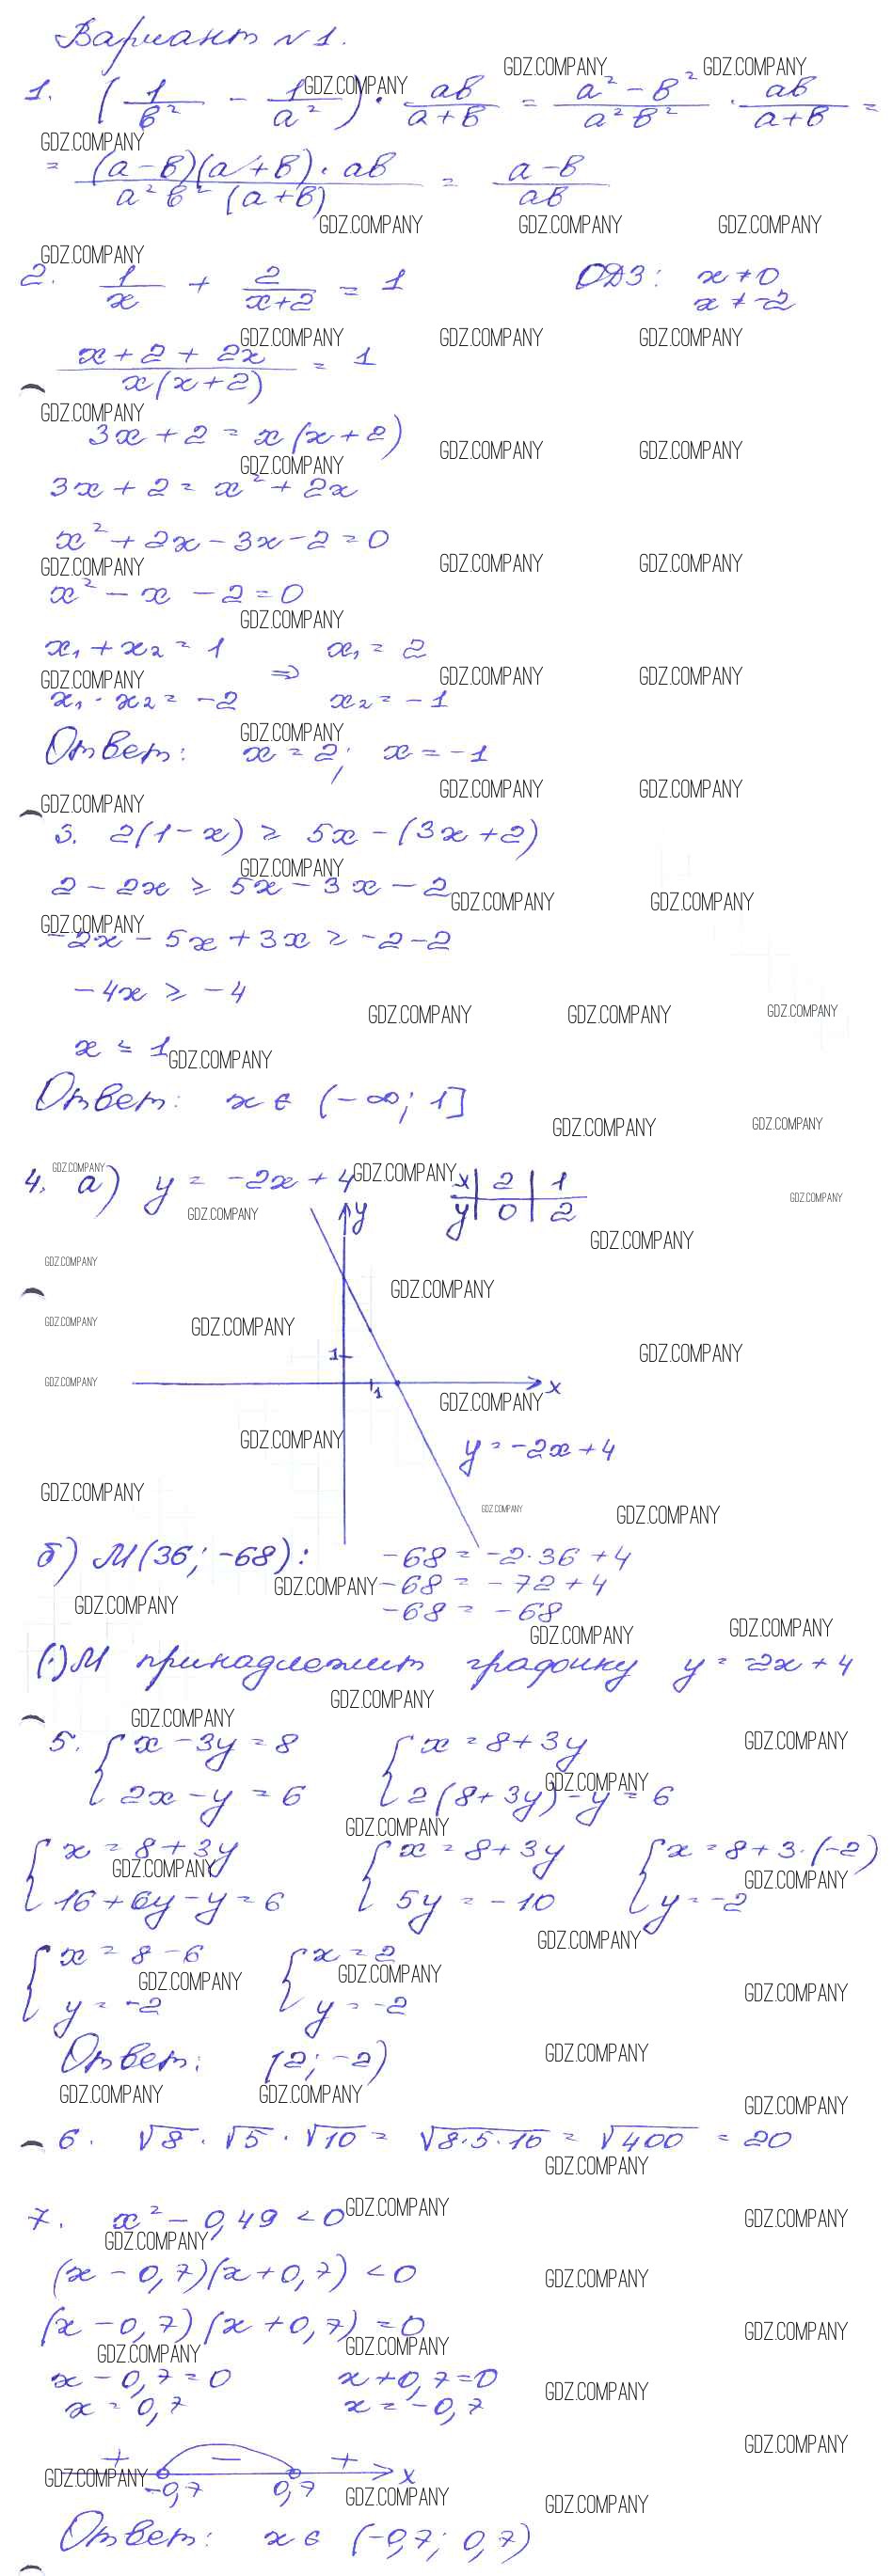 Вариант N 1.
1. (1/в² - 1/а²) · ав/(а+в) = (а² - в²)/(а²в²) · ав/(а+в) =
= ((а-в)(а+в)·ав)/(а²в²(а+в)) = (а-в)/(ав)
2. 1/x + 2/(x+2) = 1 ОДЗ: x≠0
x≠-2
(x+2+2x)/(x(x+2)) = 1
3x+2 = x(x+2)
3x+2 = x²+2x
x²+2x-3x-2=0
x² - x - 2 = 0
x₁+x₂ = 1 x₁ = 2
⇒
x₁·x₂ = -2 x₂ = -1
Ответ: x = 2; x = -1
3. 2(1-x) ≥ 5x-(3x+2)
2-2x ≥ 5x-3x-2
-2x-5x+3x ≥ -2-2
-4x ≥ -4
x ≤ 1
Ответ: x ∈ (-∞; 1]
4. а) y = -2x+4 x | 2 | 1
y | 0 | 2
y
1
1 x
y = -2x+4
б) М(36; -68): -68 = -2·36+4
-68 = -72+4
-68 = -68
(·)М принадлежит графику y = -2x+4
5. { x-3y=8 { x=8+3y
{ 2x-y=6 { 2(8+3y)-y=6
{ x=8+3y { x=8+3y { x=8+3·(-2)
{ 16+6y-y=6 { 5y=-10 { y=-2
{ x=8-6 { x=2
{ y=-2 { y=-2
Ответ: (2; -2)
6. √8 · √5 · √10 = √8·5·10 = √400 = 20
7. x² - 0,49 < 0
(x-0,7)(x+0,7) < 0
(x-0,7)(x+0,7) = 0
x-0,7=0 x+0,7=0
x=0,7 x=-0,7
+ - +
-0,7 0,7 x
Ответ: x ∈ (-0,7; 0,7)
GDZ.COMPANY